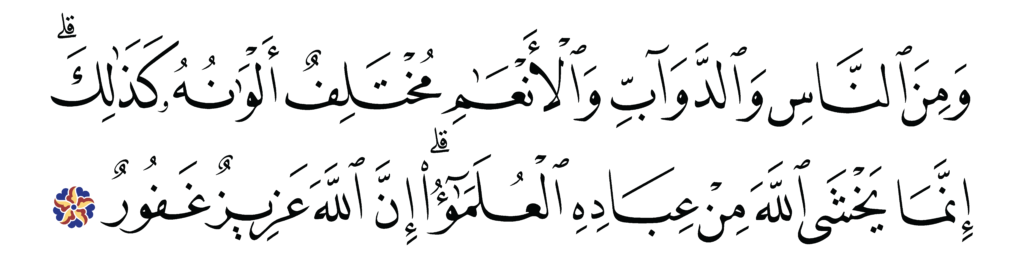 وَمِنَ ٱلنَّاسِ وَٱلدَّوَآبِّ وَٱلْأَنْعَـٰمِ مُخْتَلِفٌ أَلْوَٰنُهُۥ كَذَٰلِكَ ۗ
إِنَّمَا يَخْشَى ٱللَّهَ مِنْ عِبَادِهِ ٱلْعُلَمَـٰٓؤُا۟ ۗ إِنَّ ٱللَّهَ عَزِيزٌ غَفُورٌ